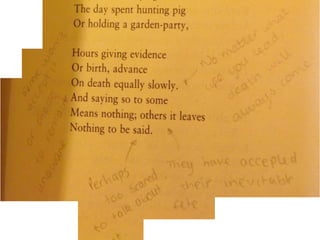 The day spent hunting pig
Or holding a garden-party,
Hours giving evidence
Or birth, advance
On death equally slowly.
And saying so to some
Means nothing; others it leaves
Nothing to be said.
No matter what
life you lead
death will
always come
Perhaps
too scared
to talk about
it
They have accepted
their inevitable
fete